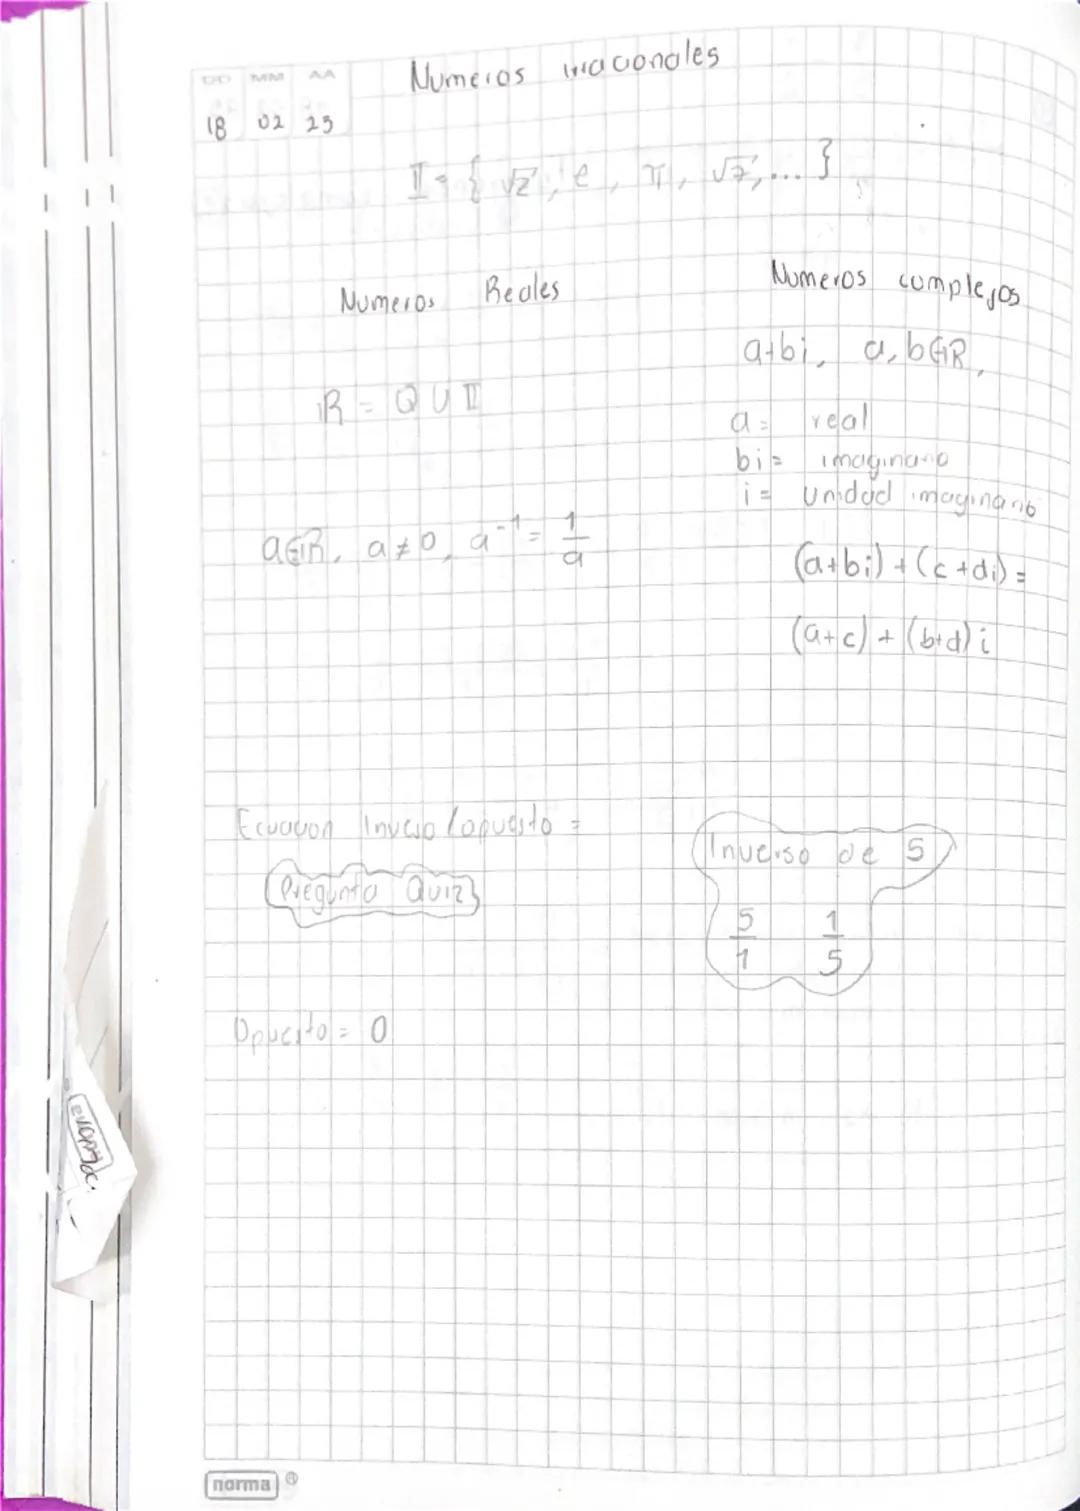 DD MM AA
18 02 23
Numeros irracionales
II = { √2, e, π, √7, ... }
Numeros Reales
R = Q U II
a∈R, a≠0, a⁻¹ = 1/a
Numeros complejos
a+bi, a, b∈R,
a = real
bi = imaginario
i = unidad imaginario
(a+bi) + (c+di) =
(a+c) + (b+d) i
Ecuacion Inverso/opuesto =
Pregunta Quiz
Inverso de 5
5/1 1/5
Opuesto = 0
norma ®